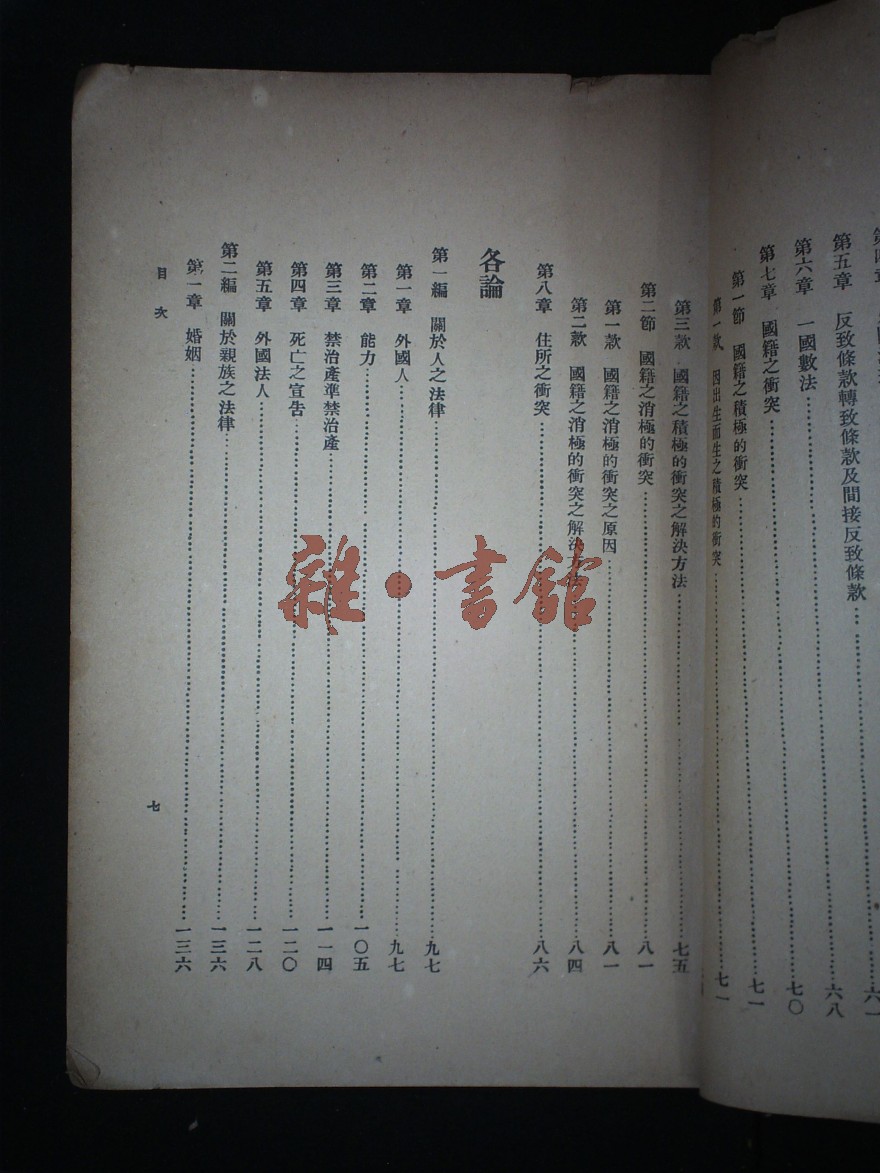 六一
第五章 反致條款轉致條款及間接反致條款……六八
第六章 一國數法……七〇
第七章 國籍之衝突……七一
第一節 國籍之積極的衝突……七一
第一款 因出生而生之積極的衝突
第三款 國籍之積極的衝突之解決方法……七五
第二節 國籍之消極的衝突……八一
第一款 國籍之消極的衝突之原因……八一
第二款 國籍之消極的衝突之解決方法……八四
第八章 住所之衝突……八六
各論
第一編 關於人之法律……九七
第一章 外國人……九七
第二章 能力……一〇五
第三章 禁治產準禁治產……一一四
第四章 死亡之宣告……一二〇
第五章 外國法人……一二八
第二編 關於親族之法律……一三六
第一章 婚姻……一三六
目次
七
雜·書館